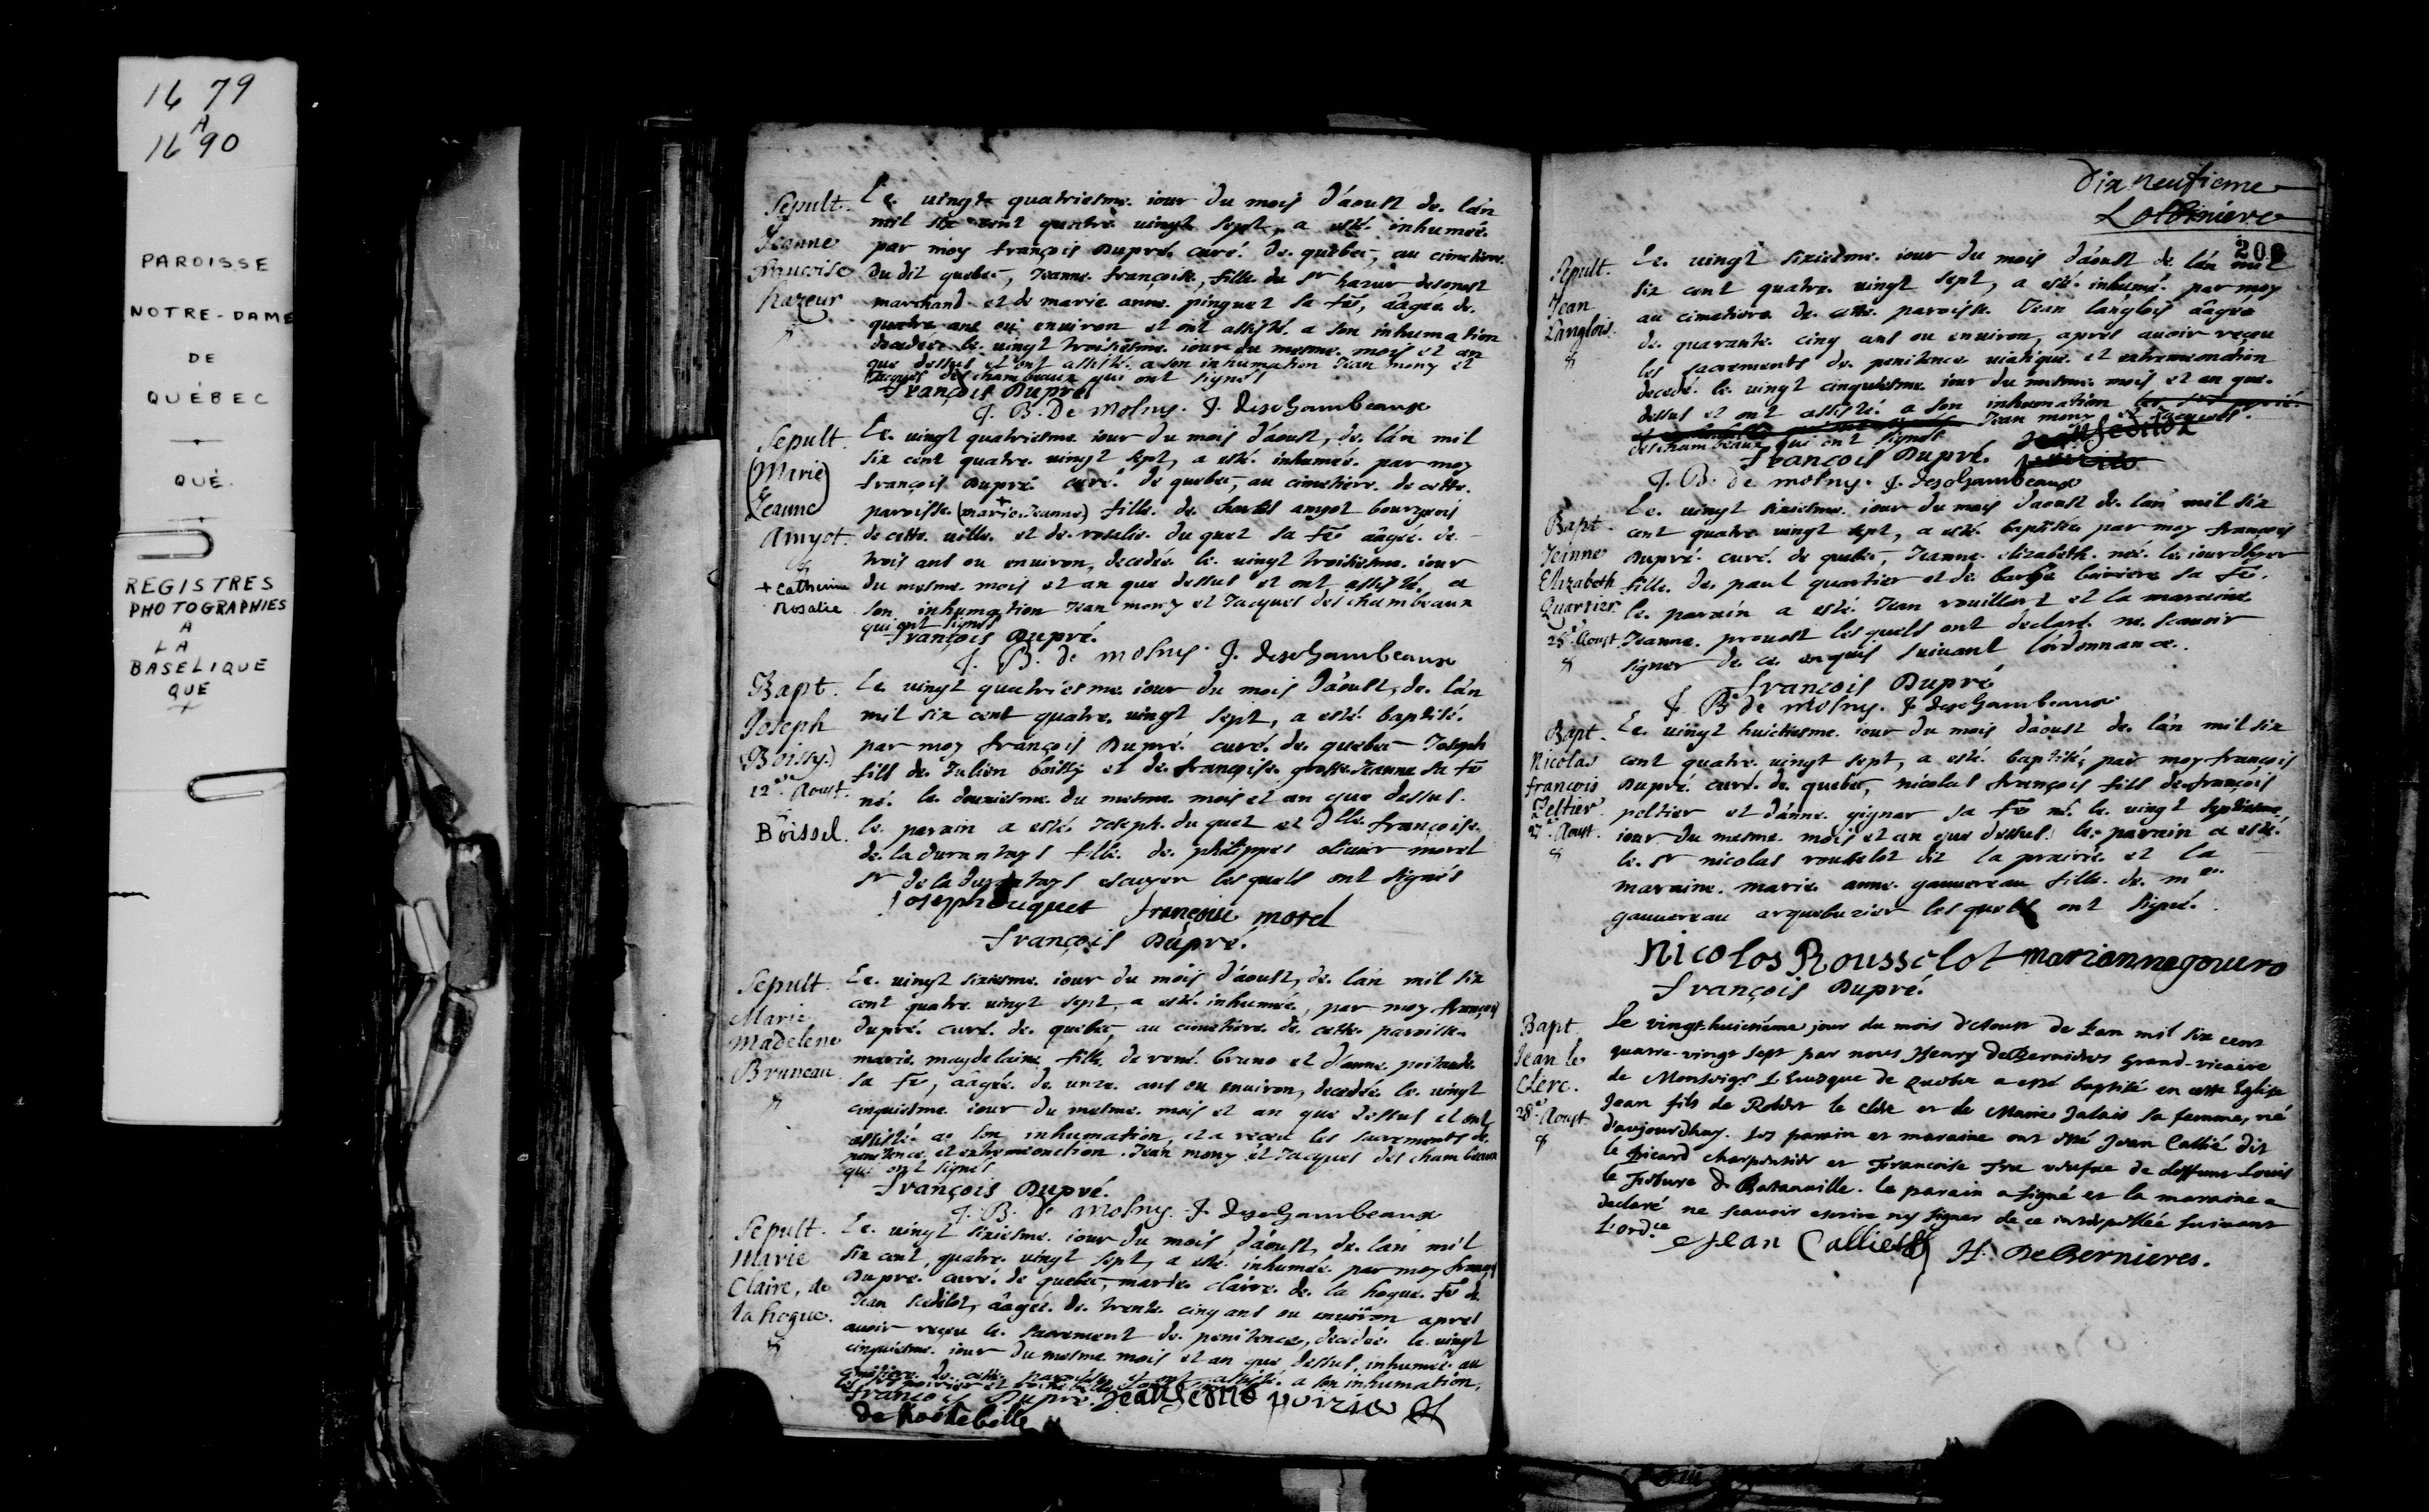 1679
A
1690
PAROISSE
NOTRE-DAME
DE
QUÉBEC
QUÉ.
REGISTRES
PHOTOGRAPHIES
A
LA
BASELIQUE
QUE
Sepult.
Jeanne
francoise
hazeur
Le vingt quatriesme iour du mois d'aoust de l'an
mil six cent quatre vingt sept, a esté inhumée
par moy françois Dupré curé de quebec, au cimetiere
du dit quebec, Jeanne françoise, fille du sr hazur desonest
marchand et de marie anne pinguet sa fe, âàgée de
quatre ans ou environ et ont assisté a son inhumation
decedee le vingt troisiesme iour du mesme mois et an
que dessus et ont assisté a son inhumation Jean mony et
Jacques des chambeaux qui ont signés
François Dupré
J. B. De molny. J. deschambeaux
Sepult.
(Marie)
Jeanne
Amyot.
+ Catherine
Rosalie
Le vingt quatriesme iour du mois d'aoust, de l'an mil
six cent quatre vingt sept, a esté inhumée par moy
françois Dupré curé de quebec, au cimetiere de cette
paroisse (marie Jeanne) + fille de charles amyot bourgeois
de cette ville et de rosalie du quet sa fe âàgée de
trois ans ou environ, decedée le vingt troisiesme iour
du mesme mois et an que dessus et ont assisté a
son inhumation Jean mony et Jacques des chambeaux
qui ont signés
François Dupré.
J. B. de molny. J. deschambeaux
Bapt.
Joseph
(Boissy)
12e Aoust.
Boissel.
Le vingt quatriesme iour du mois d'aoust, de l'an
mil six cent quatre vingt sept, a esté baptisé
par moy françois Dupré curé de quebec Joseph
fils de Julien boissy et de françoise grosse Jeanne sa fe
né le douziesme du mesme mois et an que dessus.
le parain a esté Joseph du quet et dlle françoise
de la durantays fille de philippes olivier morel
sr de la durantays escuyer les quels ont signés
Joseph duquet françoise morel
François Dupré.
Sepult.
Marie
Madelene
Bruneau
Le vingt sixiesme iour du mois d'aoust, de l'an mil six
cent quatre vingt sept, a esté inhumée, par moy françois
dupré curé de quebec, au cimetiere de cette paroisse
marie magdelaine fille de rené bruno et d'anne poitaude
sa fe, âàgée de unze ans ou environ, decedée le vingt
cinquiesme iour du mesme mois et an que dessus et ont
assisté a son inhumation, et a receu les sacrements de
penitence et extremeonction. Jean mony et Jacques des chambeaux
qui ont signés
François Dupré.
J. B. de molny. J. deschambeaux
Sepult.
Marie
Claire, de
la hogue.
Le vingt sixiesme iour du mois d'aoust, de l'an mil
six cent, quatre vingt sept, a esté inhumée par moy françois
Dupré curé de quebec, marie claire de la hogue fe de
Jean sedilot, âàgée de trente cinq ans ou environ apres
avoir reçeu le sacrement de penitence, decedée le vingt
cinquiesme iour du mesme mois et an que dessus, inhumée au
cimetiere de cette paroisse et ont assisté a son inhumation,
François Dupré. Jean sedilo
Dix neufieme
Lotbiniere
Sepult.
Jean
Langlois.
Le vingt sixiesme iour du mois d'aoust de l'an mil
six cent quatre vingt sept, a esté inhumé par moy
au cimetiere de cette paroisse Jean langlois âàgée
de quarante cinq ans ou environ, apres avoir reçeu
les sacrements de penitence viatique et extremeonction
decedé le vingt cinquiesme iour du mesme mois et an que
dessus et ont assisté a son inhumation
Jean mony et Jacques
deschambeaux qui ont signés
François Dupré.
J. B. de molny. J. deschambeaux
Bapt.
Jeanne
Elizabeth
Quartier
25e Aoust.
Le vingt sixiesme iour du mois d'aoust de l'an mil six
cent quatre vingt sept, a esté baptisée par moy françois
Dupré curé de quebec, Jeanne elizabeth née le iour d'hyer
fille de paul quartier et de barbe boiviere sa fe.
le parain a esté Jean rouillart et la maraine
Jeanne prevost les quels ont declaré ne scavoir
signer de ce enquis suivant l'ordonnance.
François Dupré
J. B. de molny. J. deschambeaux
Bapt.
Nicolas
françois
Peltier
27e Aoust.
Le vingt huictiesme iour du mois d'aoust de l'an mil six
cent quatre vingt sept, a esté baptisé, par moy françois
Dupré curé de quebec, nicolas françois fils de françois
peltier et d'anne gignar sa fe né le vingt septiesme
iour du mesme mois et an que dessus. le parain a esté
le sr nicolas rousselot dit la prairie et la
maraine marie anne gauvereau fille de me
gauvereau arquebuzier les quels ont signé.
Nicolos Rousselot marianne gouuro
François Dupré.
Bapt.
Jean le
Clerc.
28e Aoust
Le vingt-huictiéme jour du mois d'Aoust de l'an mil six cent
quatre-vingt sept par nous Henry deBernieres Grand-vicaire
de Monseigr L'Evesque de Quebec a esté baptisé en cette Eglise
Jean fils de Robert le Clerc et de Marie Jalais sa femme, né
d'aujourdhuy. Les parain et maraine ont esté Jean Callié dit
le Picard charpentier et Francoise veufve de deffunt Louis
le Febvre de Batanville. le parain a signé et la maraine a
declaré ne scavoir escrire ny signer de ce interpellée suivant
L'ordce
Jean Calliet H. DeBernieres.